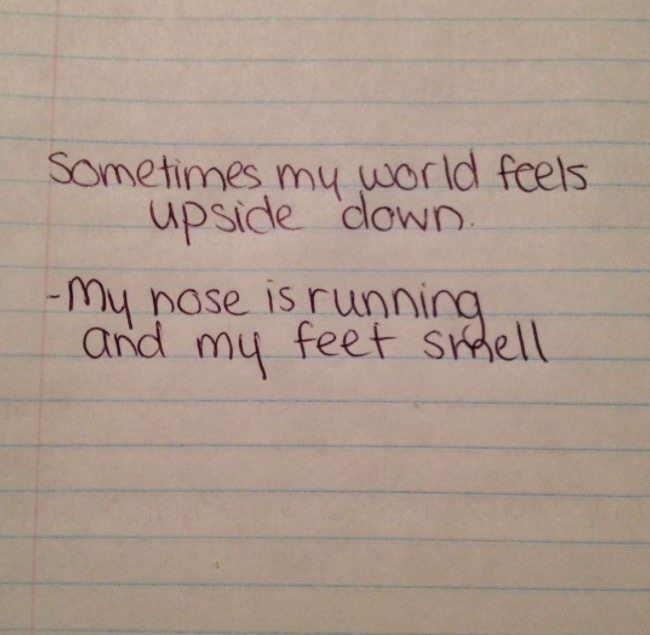 Sometimes my world feels
upside down.
-My nose is running
and my feet smell